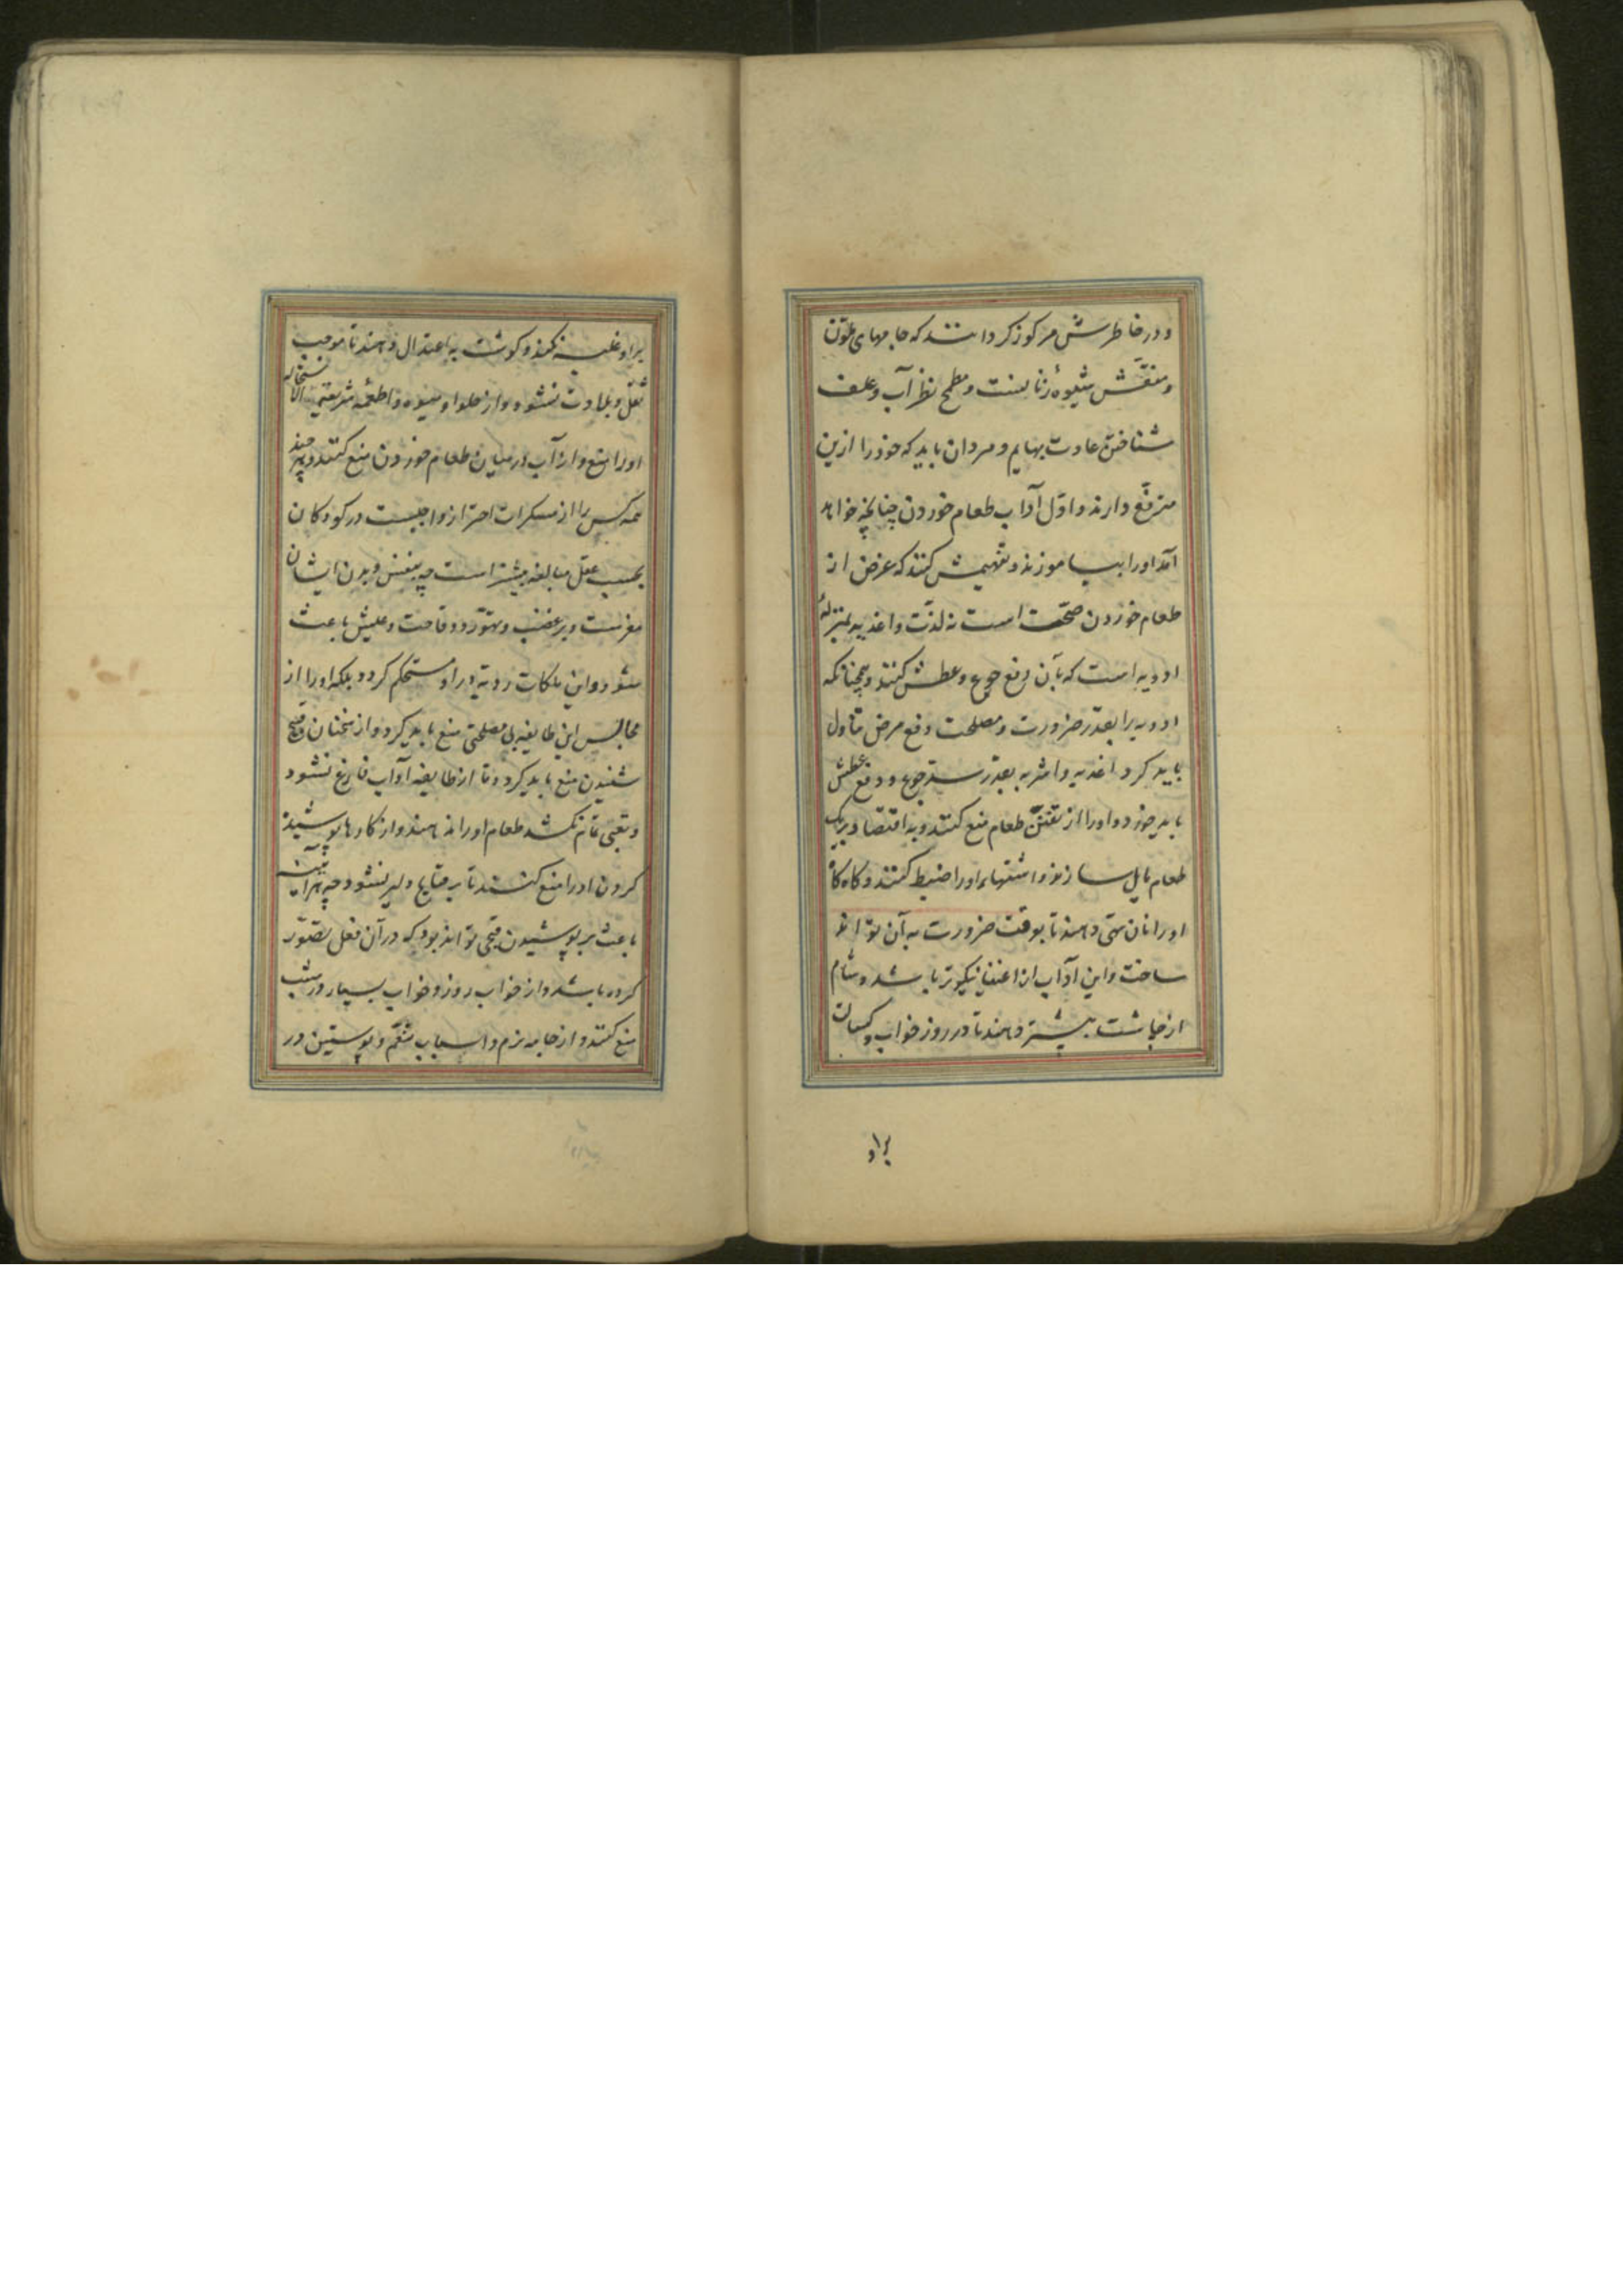 و در خاطرش مرکوز کردانند که جامهای ملوّن
و منقّش شیوهٔ زنانست و مطمح نظر آب و علف
شناختن عادت بهایم و مردان باید که خود را ازین
مترفّع دارند و اوّل آداب طعام خوردن چنانچه خواهد
آمد او را بیاموزند و تفهیمش کنند که غرض از
طعام خوردن صحّت است نه لذّت و اغذیه بمنزلهٔ
ادویه است که بآن دفع جوع و عطش کنند و همچنانکه
ادویه را بقدر ضرورت و مصلحت دفع مرض تناول
باید کرد اغذیه و اشربه بقدر سدّ جوع و دفع عطش
باید خورد و او را از تفنّن طعام منع کنند و به اقتصاد بر یک
طعام مایل سازند و اشتهاء او را ضبط کنند و کاه کاه
او را نان تهی دهند تا بوقت ضرورت به آن تواند
ساخت و این آداب از اغنیا نیکوتر باشد و شام
از چاشت بیشتر دهند تا در روز خواب و کسالت
براو
بر او غلبه نکند و کوشت به اعتدال دهند تا موجب
ثقل و بلادت نشود و از حلوا و میوه و اطعمه سریعة الاستحاله
او را منع و از آب در میان طعام خوردن منع کنند و هر چند
همه کس را از مسکرات احتراز واجبست در کودکان
بحسب عقل مبالغه بیشتر است چه بنفس و بدن ایشان
مضرست و بر غضب و تهوّر و وقاحت و طیش باعث
شود و این ملکات ردیّه در او مستحکم کردد بلکه او را از
مجالس این طایفه بی مصلحتی منع باید کرد و از سخنان قبیح
شنیدن منع باید کرد و تا از طایفه آداب فارغ نشود
و تعبی تمام نکشد طعام او را ندهند و از کارها پوشیده
کردن او را منع کنند تا بر قبایح دلیر نشود چه هر آینه
باعث بر پوشیدن قبحی تواند بود که در آن فعل تصوّر
کرده باشد و از خواب روز و خواب بسیار در شب
منع کنند و از جامه نرم و اسباب تنعّم و پوستین در